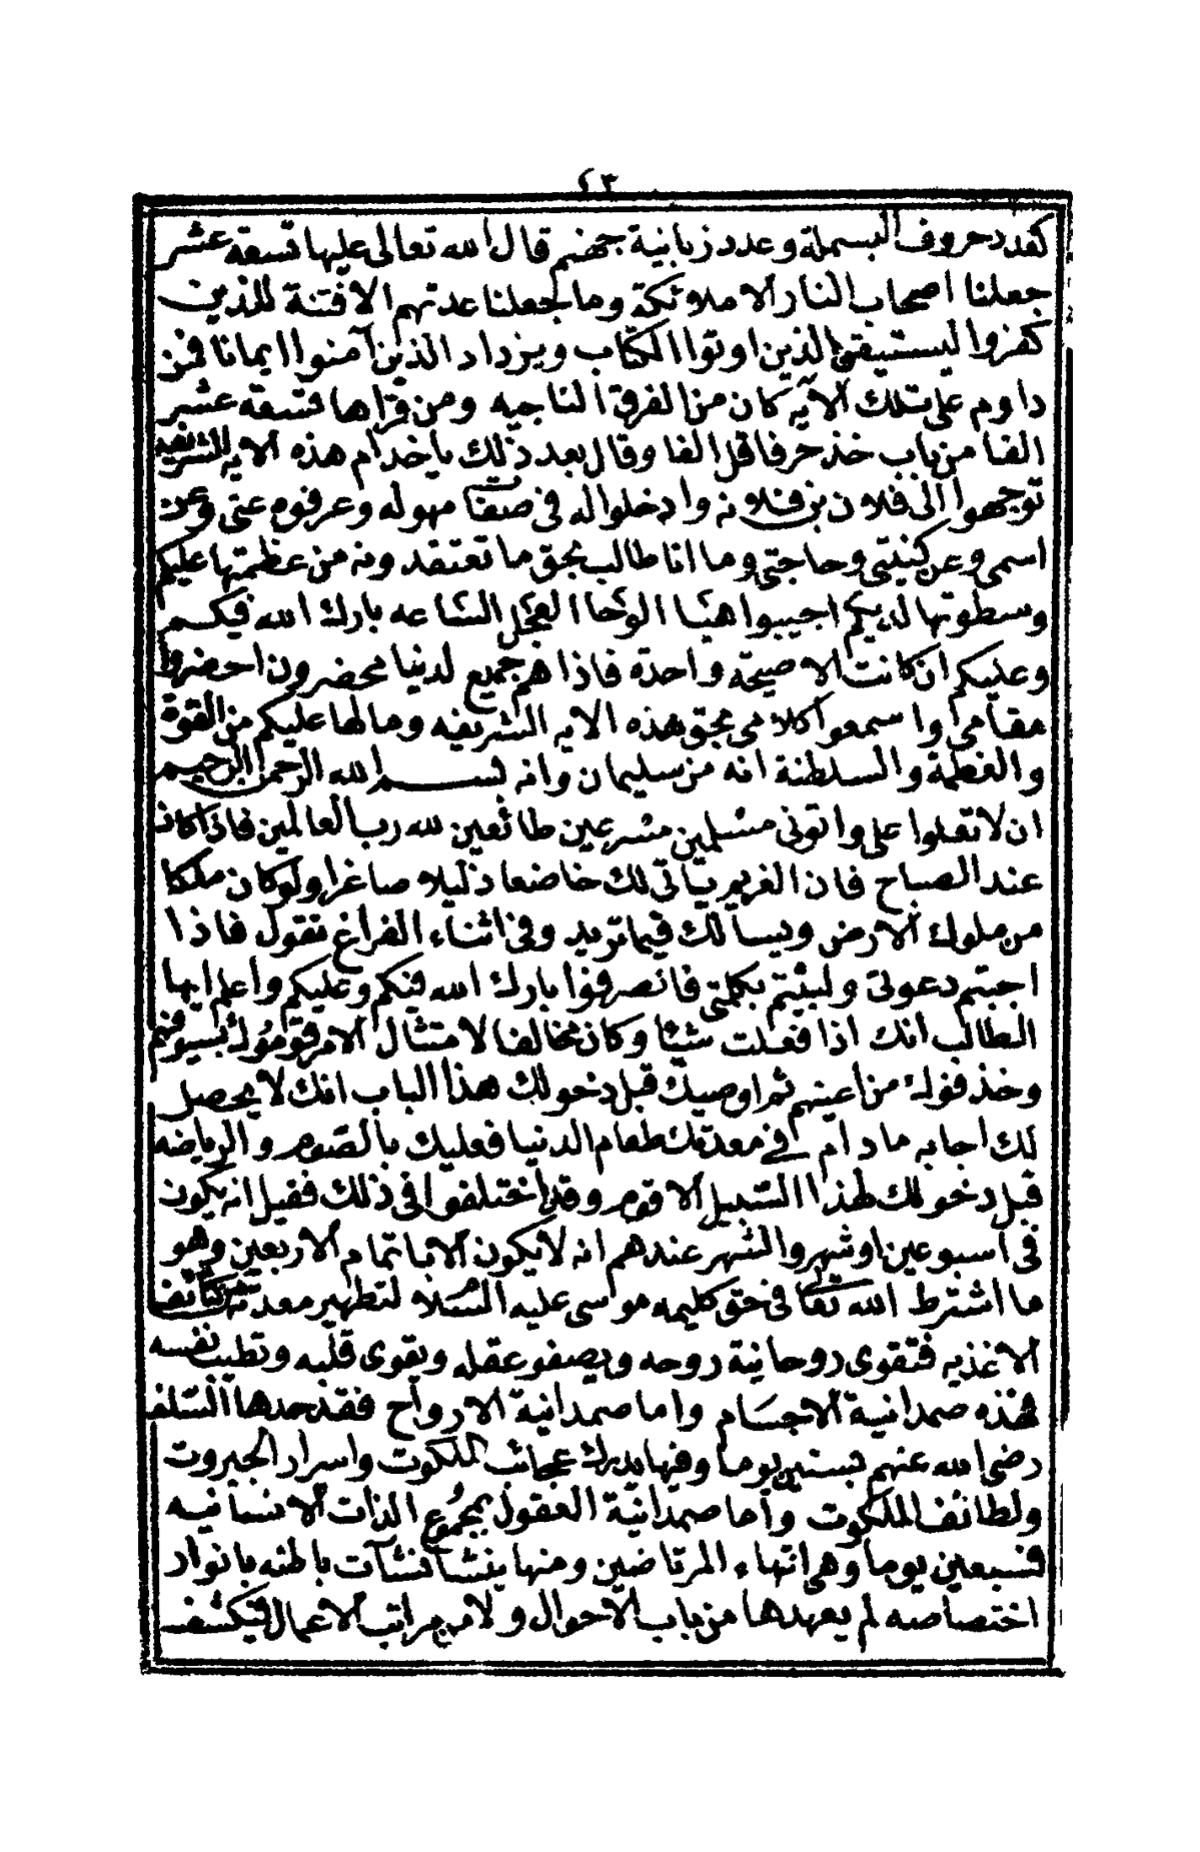 ٤٣
كعدد حروف البسملة وعدد زبانية جهنم قال الله تعالى عليها تسعة عشر
جعلنا اصحاب النار الا ملائكة وما جعلنا عدتهم الا فتنة للذين
كفروا ليستيقن الذين اوتوا الكتاب ويزداد الذين آمنوا ايمانا فمن
داوم على تلك الآيه كان من الفرق الناجيه ومن قرأها تسعة عشر
الفا من باب خذ حرفا قل الفا وقال بعد ذلك يا خدام هذه الايه الشريفه
توجهوا الى فلان بن فلانه وادخلوا له في صفة مهوله وعرفوه عنى وعن
اسمى وعن كنيتى وحاجتى وما انا طالب بحق ما تعتقدونه من عظمتها عليكم
وسطوتها لديكم اجيبوا هيا الوحا العجل الساعه بارك الله فيكم
وعليكم ان كانت الا صيحة واحدة فاذا هم جميع لدينا محضرون احضروا
مقامى واسمعوا كلامى بحق هذه الايه الشريفه وما لها عليكم من القوة
والعظمة والسلطنة انه من سليمان وانه بسم الله الرحمن الرحيم
ان لا تعلوا على واتونى مسلمين مسرعين طائعين لله رب العالمين فاذا كان
عند الصباح فان الغريم يأتى لك خاضعا ذليلا صاغرا ولو كان ملكا
من ملوك الارض ويسألك فيما تريد وفى اثناء الفراغ تقول فاذا
اجبتم دعوتى ولبيتم بكلمتى فانصرفوا بارك الله فيكم وعليكم واعلم ايها
الطالب انك اذا فعلت شيئا وكان مخالفا لامتثال الامر بسيوفهم
وخذ من اعينهم ثم اوصيك قبل دخولك هذا الباب انك لا يحصل
لك اجابه ما دام في معدتك طعام الدنيا فعليك بالصوم والرياضه
قبل دخولك لهذا السبيل الاقوم وقد اختلفوا فى ذلك فقيل انه يكون
فى اسبوعين او شهر والشهر عندهم انه لا يكون الا باتمام الاربعين وهو
ما اشترط الله تعالى فى حق كليمه موسى عليه السلام لتطهير معدته كثائف
الاغذيه فتقوى روحانية روحه ويصفو عقله ويقوى قلبه وتطيب نفسه
فهذه صمدانية الاجسام واما صمدانية الارواح فقد حدها السلف
رضى الله عنهم بستين يوما وفيها يدرك عجائب الملكوت واسرار الجبروت
ولطائف الملكوت وأما صمدانية العقول بمجموع الذات الانسانيه
فسبعين يوما وهى انتهاء المرتاضين ومنها ينشأ نشآت باطنه بانوار
اختصاصه لم يعهدها من باب الاحوال ولا من مراتب الاعمال فيكشف